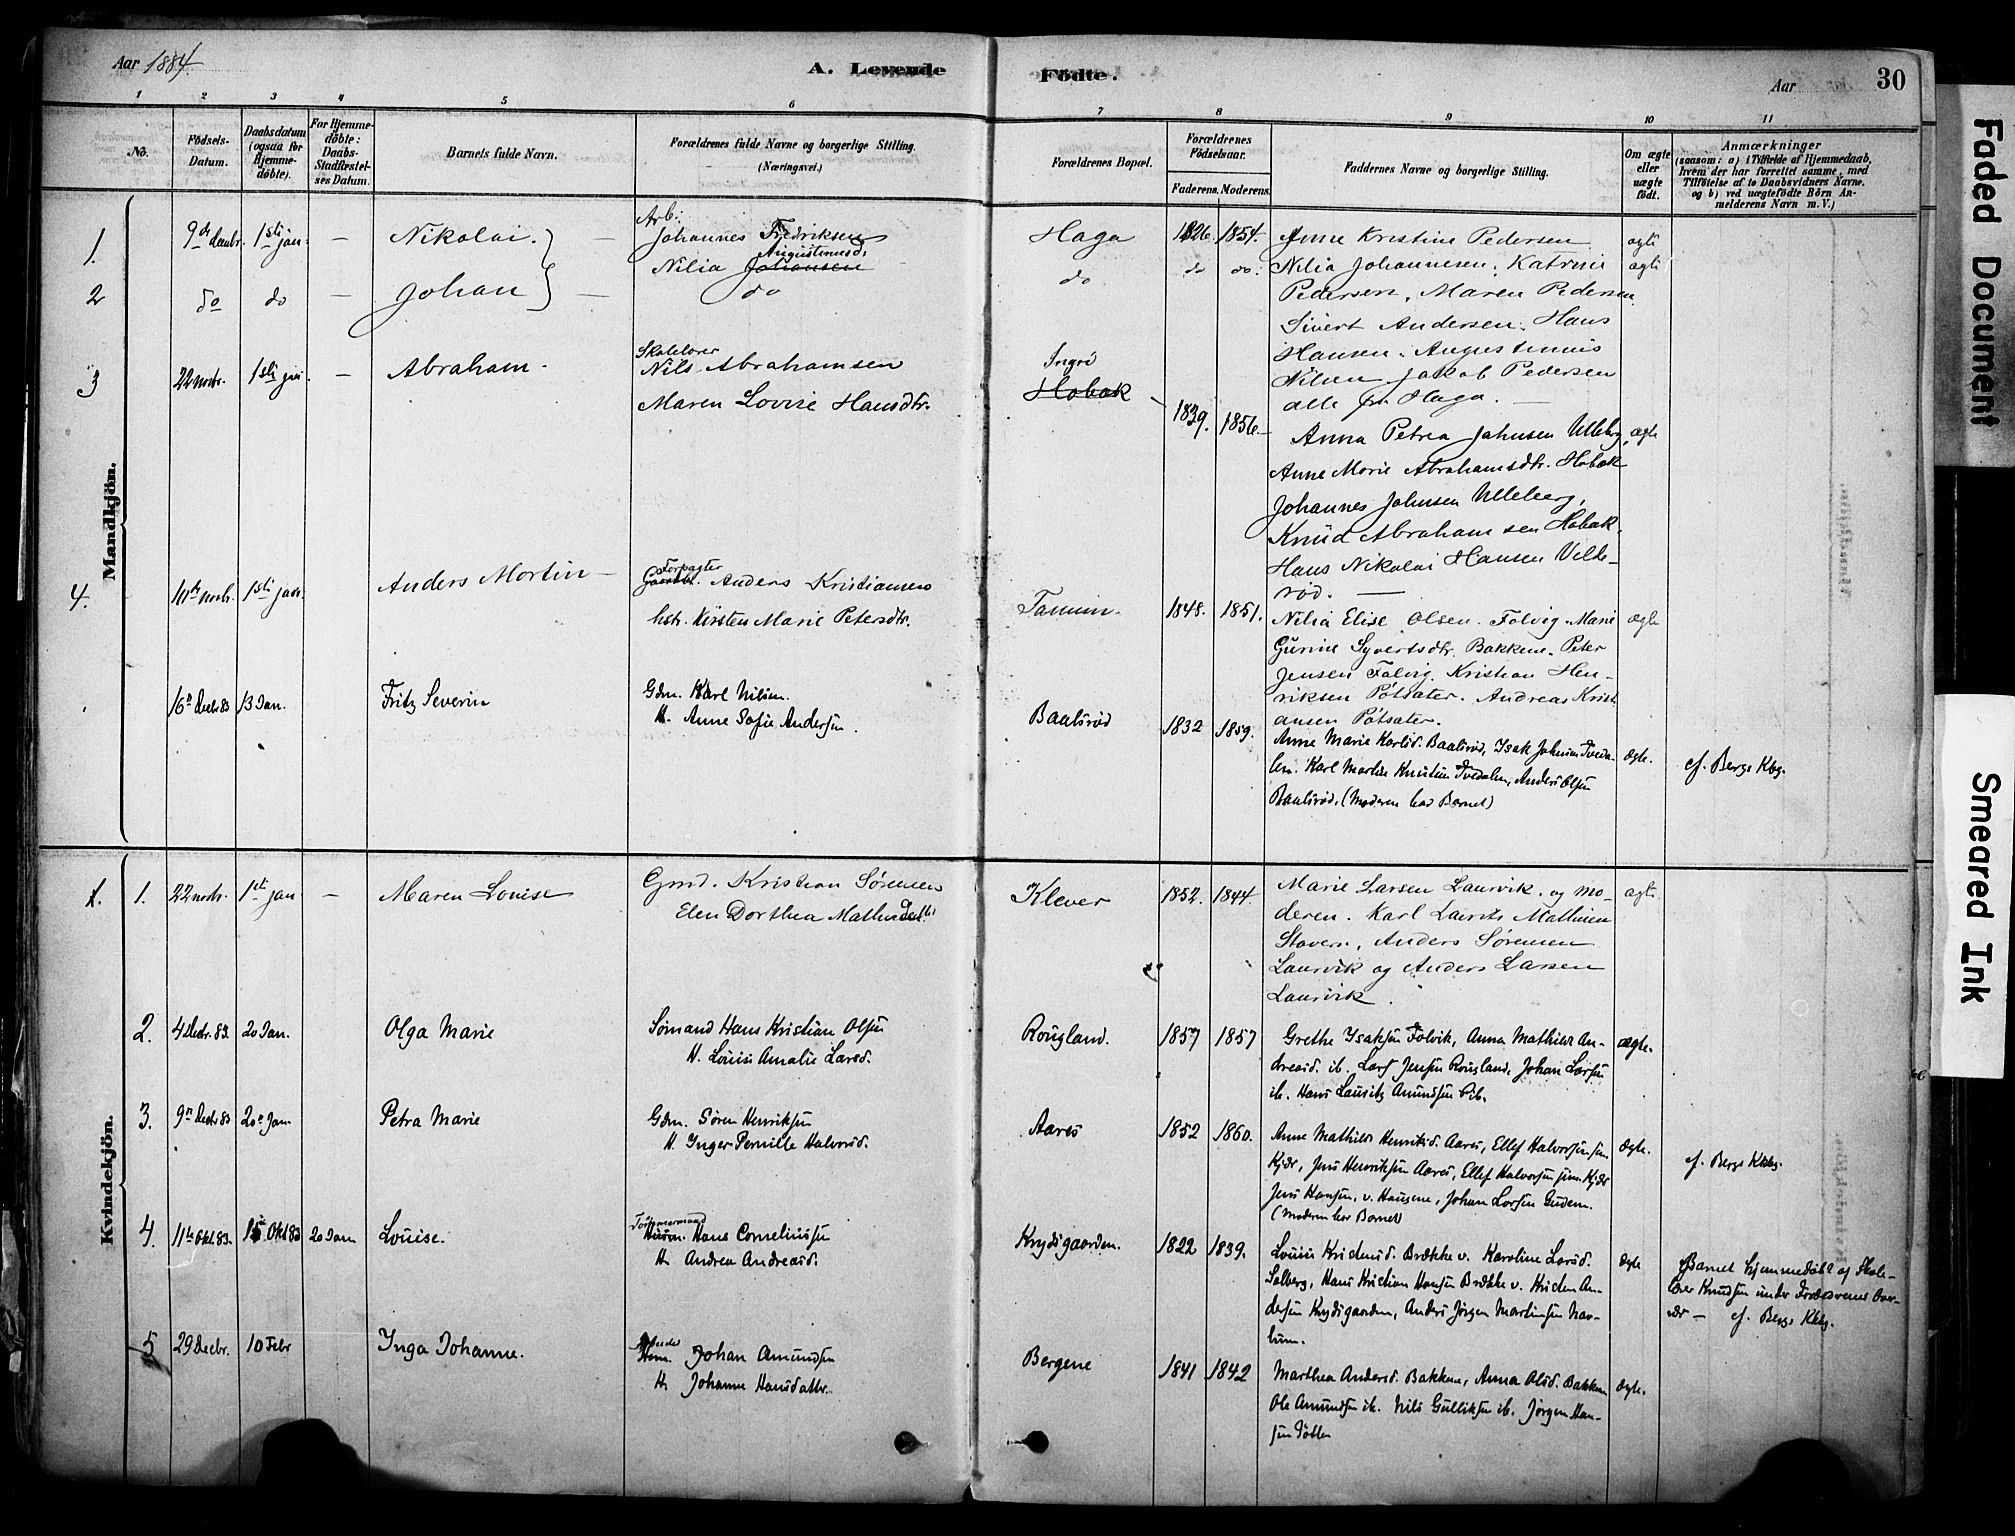 Aar 1884
A. Levende Födte.
Aar 30
1 2 3 4 5 6 7 8 9 10 11
No.
Födsels-Datum.
Daabsdatum (ogsaa for Hjemme-döbte).
For Hjemme-döbte: Daabs-Stadfæstel-ses Datum.
Barnets fulde Navn.
Forældrenes fulde Navne og borgerlige Stilling.
(Næringsvei.)
Forældrenes Bopæl.
Forældrenes Födselsaar.
Faderens. Moderens.
Faddernes Navne og borgerlige Stilling.
Om ægte eller uægte födt.
Anmærkninger
(saasom: a) i Tilfælde af Hjemmedaab,
hvem der har forrettet samme, med
Tilföielse af to Daabsvidners Navne.
og b) ved uægtefödte Börn An-
melderens Navn m. V.)
Mandkjön.
1. 9de decbr. 1ste jan. — Nikolai.
Arb:
Johannes Fredriksen
Augustinusd.
Nilia Johansen
Haga 1826. 1854.
Anne Kristine Pedersen
Nilia Johannesen, Katrine
Pedersen, Maren Pedersen
Sivert Andersen. Hans
Hansen. Augustinus
Nilsen Jakob Pedersen
alle fra Haga. —
ægte
2 do do — Johan — do
do do do. ægte
3 22 novbr. 1ste jan. — Abraham.
Skolelærer
Nils Abrahamsen
Maren Lovise Hansdtr.
Hobæk
1839. 1856.
Anna Petrea Johnsen Ulleberg,
Anne Marie Abrahamsdtr. Hobæk
Johannes Johnsen Ulleberg,
Knud Abrahamsen Hobæk.
Hans Nikolai Hansen Velle-
rød. —
ægte
4. 11te novbr. 1ste jan. Anders Martin —
Forpagter
Anders Kristiansen
hstr. Kirsten Marie Petersdtr.
Tanum. 1848. 1851.
Nilia Elise Olsen. Folvig. Marie
Gurine Syvertsdtr. Bakkene. Peter
Jensen Folvig. Kristian Hen-
riksen Pøtsater. Andreas Kristi
ansen Pøtsater.
ægte
16de Decbr 83 13 Jan. Fritz Severin
Gdm. Karl Nilsen.
H. Anne Sofie Andersen.
Baalsrød 1832 1859.
Anne Marie Karlsd. Baalsrød, Isak Johnsen Tveda-
len. Karl Martin Knutsen Tvedalen, Anders Olsen
Baalsrød. (Moderen bar Barnet)
ægte.
cf. Bergs Kbg.
Kvindekjön.
1. 1. 22 novbr. 1ste jan — Maren Louise
Gmd. Kristian Sørensen
Elen Dorthea Mathisdatter
Klever 1852. 1844.
Marie Larsen Laurvik. og Mo-
deren. Karl Laurits Mathisen
Stavern, Anders Sørensen
Laurvik og Anders Larsen
Laurvik.
ægte
2. 4 Decbr. 83. 20 Jan. Olga Marie
Sømand Hans Kristian Olsen
H. Louise Amalie Larsd.
Rougland. 1857 1857
Grethe Isaksen Folvik, Anna Mathilde An-
dreasd. ib. Lars Jensen Rougland, Johan Larsen
ib. Hans Lauritz Amundsen ib.
ægte.
3. 9de Decbr 83 20de Jan Petra Marie
Gdm. Søren Henriksen
H. Inger Pernille Halvorsd.
Aares 1852 1860.
Anne Mathilde Henriksd. Aares, Ellef Halvorsen sen.
Kjær, Jens Henriksen Aares, Ellef Halvorsen jun. Kjær
Jens Hansen, v. Haugene, Johan Larsen Gudem.
(Moderen bar Barnet)
ægte.
cf. Bergs Kbg.
4. 11te Okt. 83. 15 Okt 83 20 Jan Louise.
Tömmermand
Husm. Hans Corneliussen
H. Andrea Andreasd.
Krydsgaarden. 1822 1839.
Louise Kristensd. Brække v. Karoline Larsd.
Solberg, Hans Kristian Hansen Brække v. Kristen An-
dersen Krydsgaarden, Anders Jørgen Martinsen Nav-
lum.
ægte
Barnet hjemmedøbt af Skole-
lærer Knudsen under Forældrenes Over-
vær — cf. Bergs Kbg.
5 29 Decbr. 10 Febr Inga Johanne.
Johan Amundsen
H. Johanne Hansdatter.
Bergene 1841 1842
Marthea Andersd. Bakken, Anna Olsd. Bakken
Ole Amundsen ib. Nils Gulliksen ib. Jørgen Han-
sen
ægte.
Faded Document
Smeared Ink